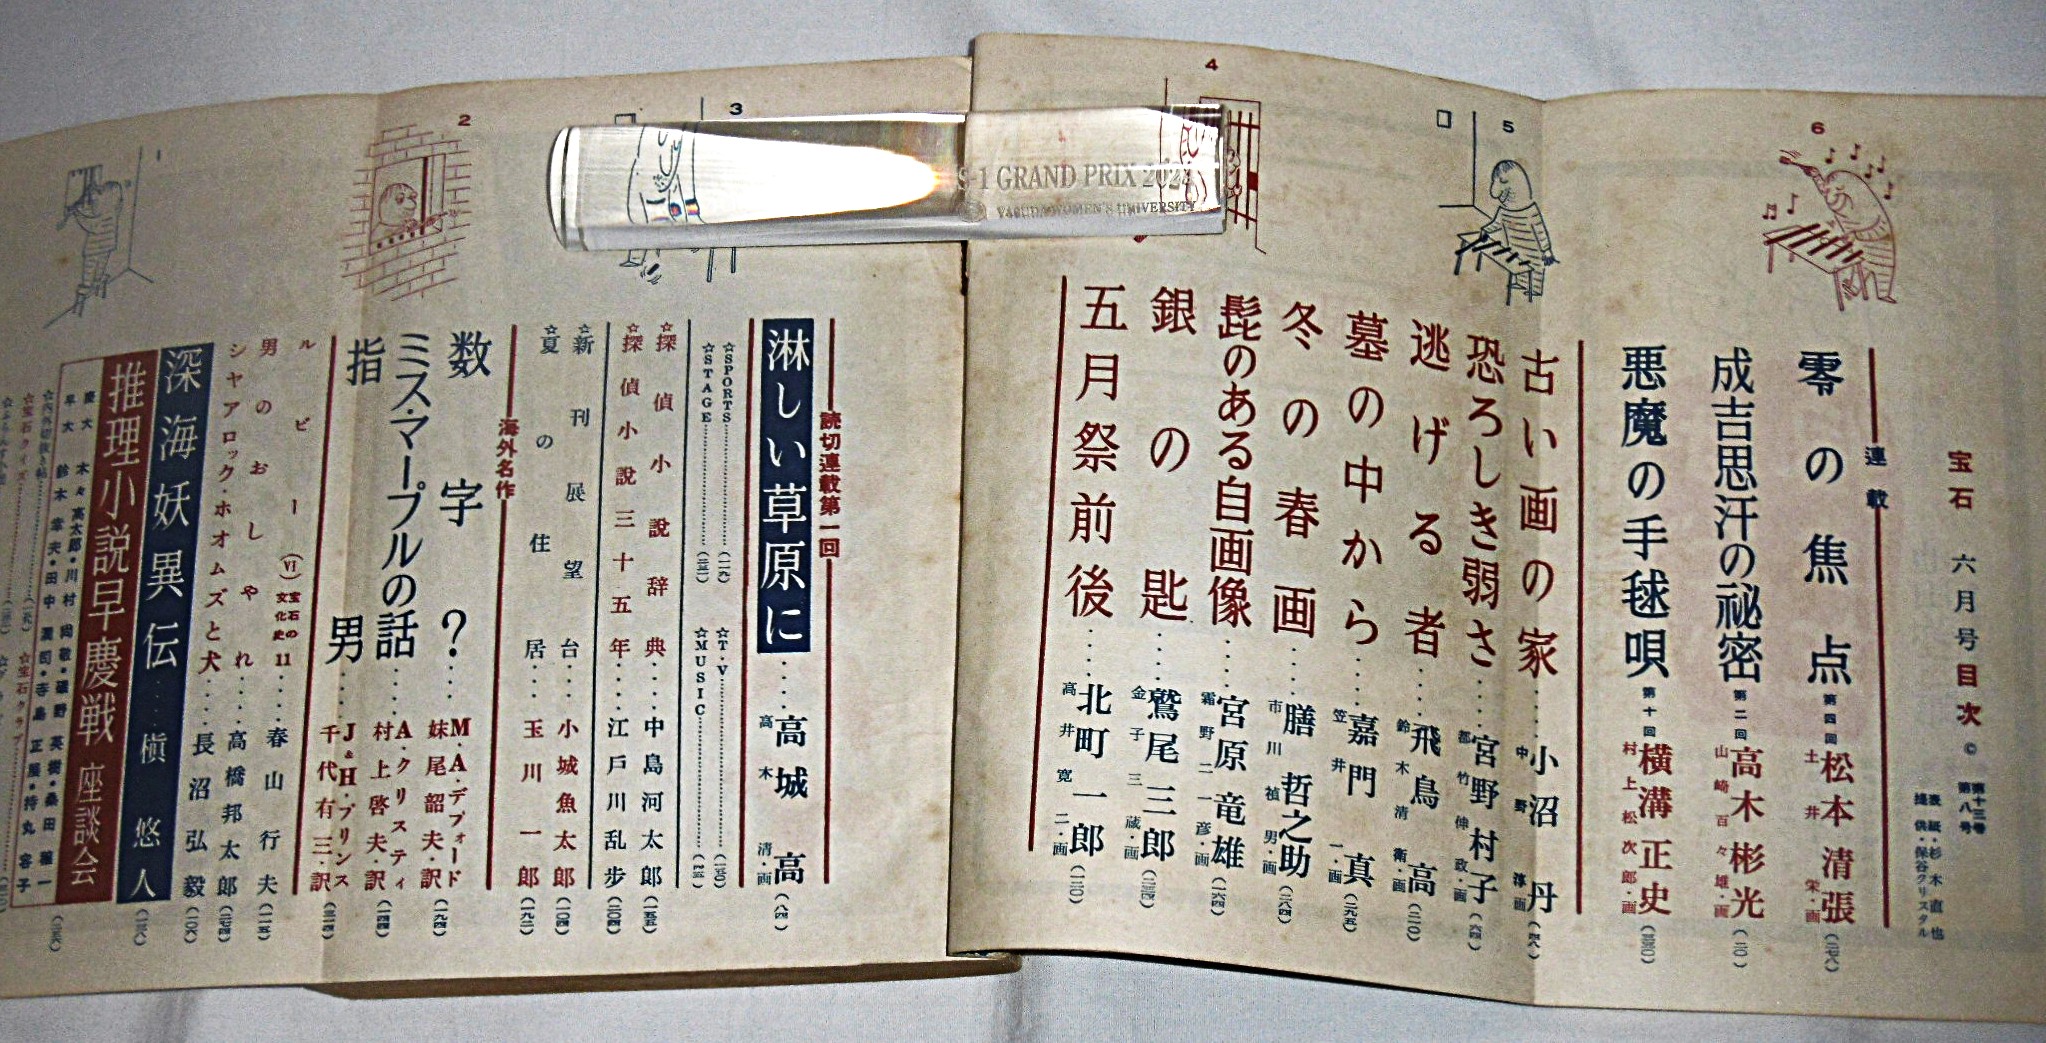 宝石 六月号目次 ©
第十三巻
第八号
表紙・杉木直也
提供・保谷クリスタル
連載
零の焦点 第四回 松本清張
土井栄・画
成吉思汗の秘密 第二回 高木彬光 (二〇)
山崎百々雄・画
悪魔の手毬唄 第十回 横溝正史
村上松次郎・画
6
5
4
3
2
1
古い画の家……小沼丹
中野淳画
恐ろしき弱さ……宮野村子
都竹伸政・画
逃げる者……飛鳥高
鈴木清・画
墓の中から……嘉門真
笠井一・画
冬の春画……膳哲之助
市川禎男・画
髭のある自画像……宮原竜雄
霜野二一彦・画
銀の匙……鷲尾三郎
金子三蔵・画
五月祭前後……北町一郎
高井寛二・画
S-1 GRAND PRIX
YASUDA WOMEN'S UNIVERSITY
読切連載第一回
淋しい草原に……高城高 (八四)
高木清・画
☆SPORTS
☆STAGE
☆T・V
☆MUSIC
☆探偵小説辞典……中島河太郎
☆探偵小説三十五年……江戸川乱歩
☆新刊展望台……小城魚太郎
☆夏の住居……玉川一郎
海外名作
数字?……M・A・デフォード
妹尾韶夫・訳
ミス・マープルの話……A・クリスティ
村上啓夫・訳
指男……J&H・プリンス
千代有三・訳
ルビー (VI) 宝石の文化史 11……春山行夫
男のおしゃれ……高橋邦太郎
シャアロック・ホオムズと犬……長沼弘毅
深海妖異伝……槇悠人
推理小説早慶戦 座談会
慶大 木々高太郎・川村
早大 鈴木幸夫・田中潤司・寺島正・持丸容子
☆宝石クイズ
☆宝石クラブ